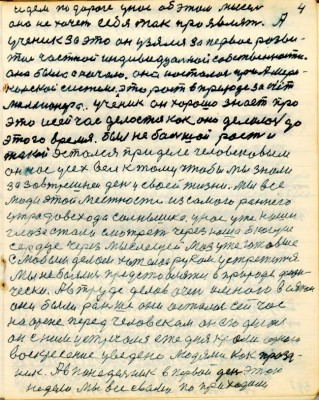 4
идем по дороге у нас об этом мысел
она не хочет себя так проявлят. А
ученик за это он узялся за первое розви-
тие частной индивидуалной собственности.
она была с начало, она осталося
риканской системе, это рост в природе за счёт
миллионера. ученик он хорошо знает про
это и сейчас делается как оно делалос до
этого время. был не болшой рост и
такой Остался при деле человеком
он нас усех Вел к тому чтобы мы знали
за завтрешней ден у своей жизни. Мы все
люди этой местности из самого раннего
утра до восхода солнышка, у нас уже наши
глаза стали смотрет через нашу
сердце через мыслящей мозг уже готовые
С Новым делом хотим руками устретится
Мы не боялис представляти в природе физи-
чески. А в труде делов очен много
они были ранше они осталис сей час
на арене перед человеком он это
он с ним устречался
воскресение уведено Людями, как празд-
ник. А в понеделник в первой ден этой
недели мы все свами по приходили